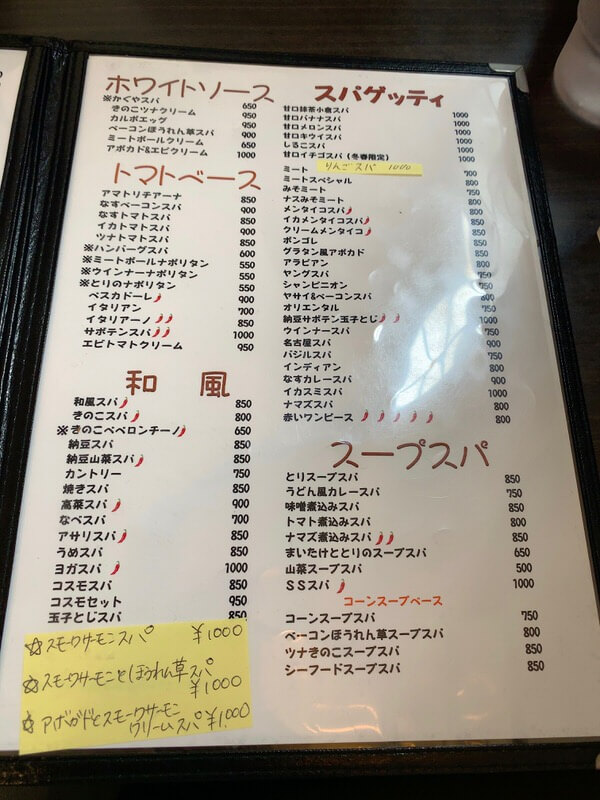 ホワイトソース
※かぐやスパ 650
きのこツナクリーム 950
カルボエッグ 950
ベーコンほうれん草スパ 900
ミートボールクリーム 650
アボカド&エビクリーム 1000
トマトベース
アマトリチアーナ 850
なすベーコンスパ 900
なすトマトスパ 850
イカトマトスパ 900
ツナトマトスパ 850
※ハンバーグスパ 600
※ミートボールナポリタン 550
※ウインナーナポリタン 550
※とりのナポリタン 550
ペスカドーレ 900
イタリアン 700
イタリアーノ 850
サボテンスパ 1000
エビトマトクリーム 950
和風
和風スパ 850
きのこスパ 800
※きのこペペロンチーノ 650
納豆スパ 850
納豆山菜スパ 850
カントリー 750
焼きスパ 850
高菜スパ 900
なべスパ 700
アサリスパ 850
うめスパ 850
ヨガスパ 1000
コスモスパ 850
コスモセット 950
玉子とじスパ 850
☆スモークサーモンスパ ¥1000
☆スモークサーモンとほうれん草スパ
¥1000
☆アボガドとスモークサーモン
クリームスパ ¥1,000
スパゲッティ
甘口抹茶小倉スパ 1000
甘口バナナスパ 1000
甘口メロンスパ 1000
甘口キウイスパ 1000
しるこスパ 1000
甘口イチゴスパ(冬春限定) 1000
りんごスパ 1000
ミート 700
ミートスペシャル 800
みそミート 750
ナスみそミート 800
メンタイコスパ 850
イカメンタイコスパ 850
クリームメンタイコ 900
ボンゴレ 850
グラタン風アボカド 850
アラビアン 800
ヤングスパ 750
シャンピニオン 750
ヤサイ&ベーコンスパ 800
オリエンタル 750
納豆サボテン玉子とじ 1000
ウインナースパ 750
名古屋スパ 900
バジルスパ 750
インディアン 800
なすカレースパ 900
イカスミスパ 1000
ナマズスパ 800
赤いワンピース 800
スープスパ
とりスープスパ 850
うどん風カレースパ 750
味噌煮込みスパ 850
トマト煮込みスパ 800
ナマズ煮込みスパ 850
まいたけととりのスープスパ 650
山菜スープスパ 500
SSスパ 1000
コーンスープベース
コーンスープスパ 750
ベーコンほうれん草スープスパ 800
ツナきのこスープスパ 850
シーフードスープスパ 850